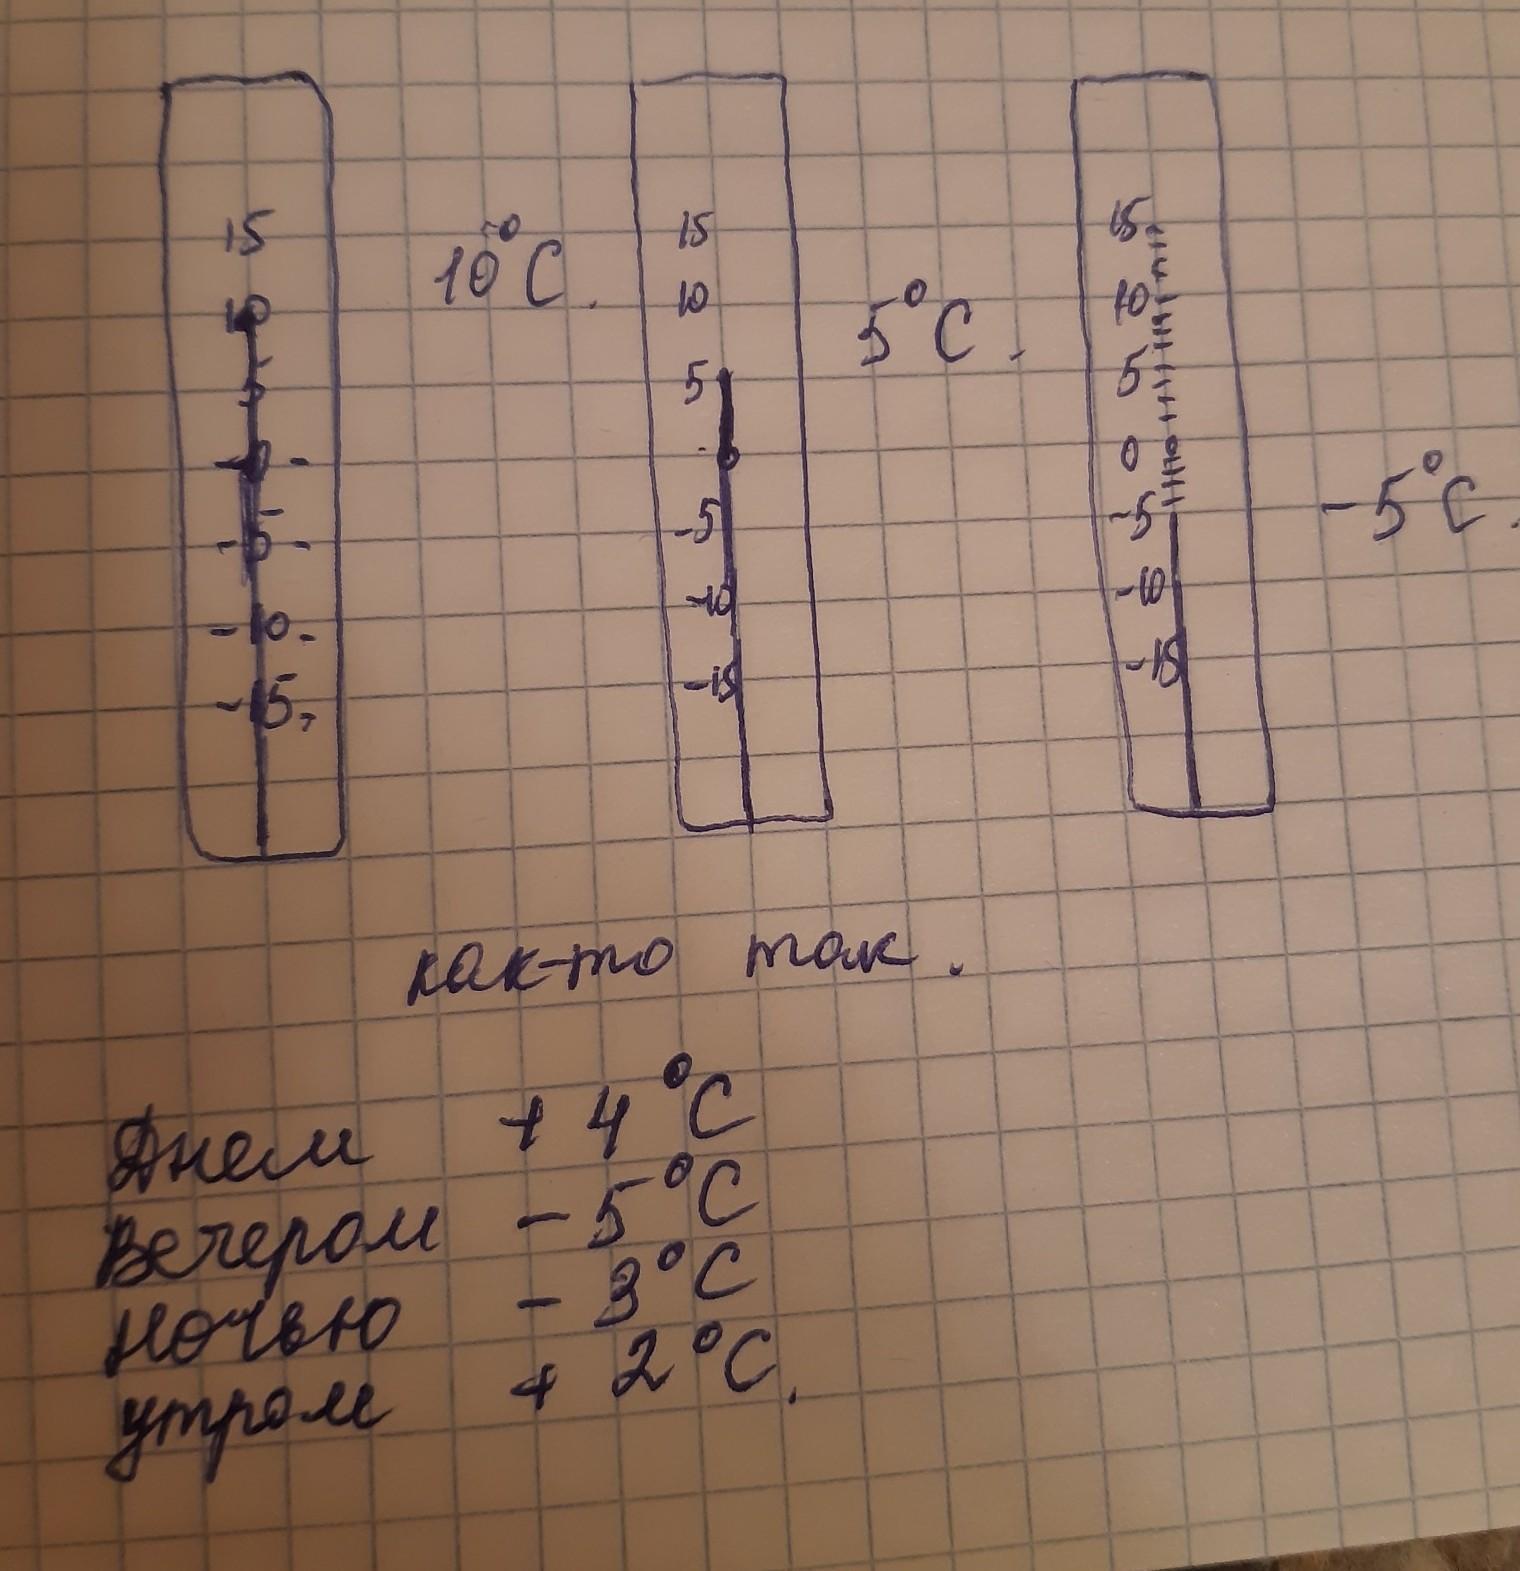 15
10
5
0 -
-5 -
-10 -
-15,
10°C.
15
10
5
0
-5
-10
-15
5°C.
15
10
5
0
-5
-10
-15
-5°C.
как-то так.
Днем +4°C
Вечером -5°C
Ночью -3°C
утром +2°C.